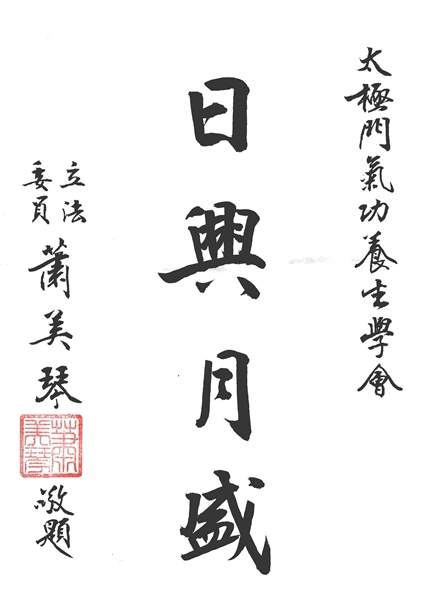 太極門氣功養生學會
日興月盛
立法
委員
蕭美琴
敬題
蕭美琴